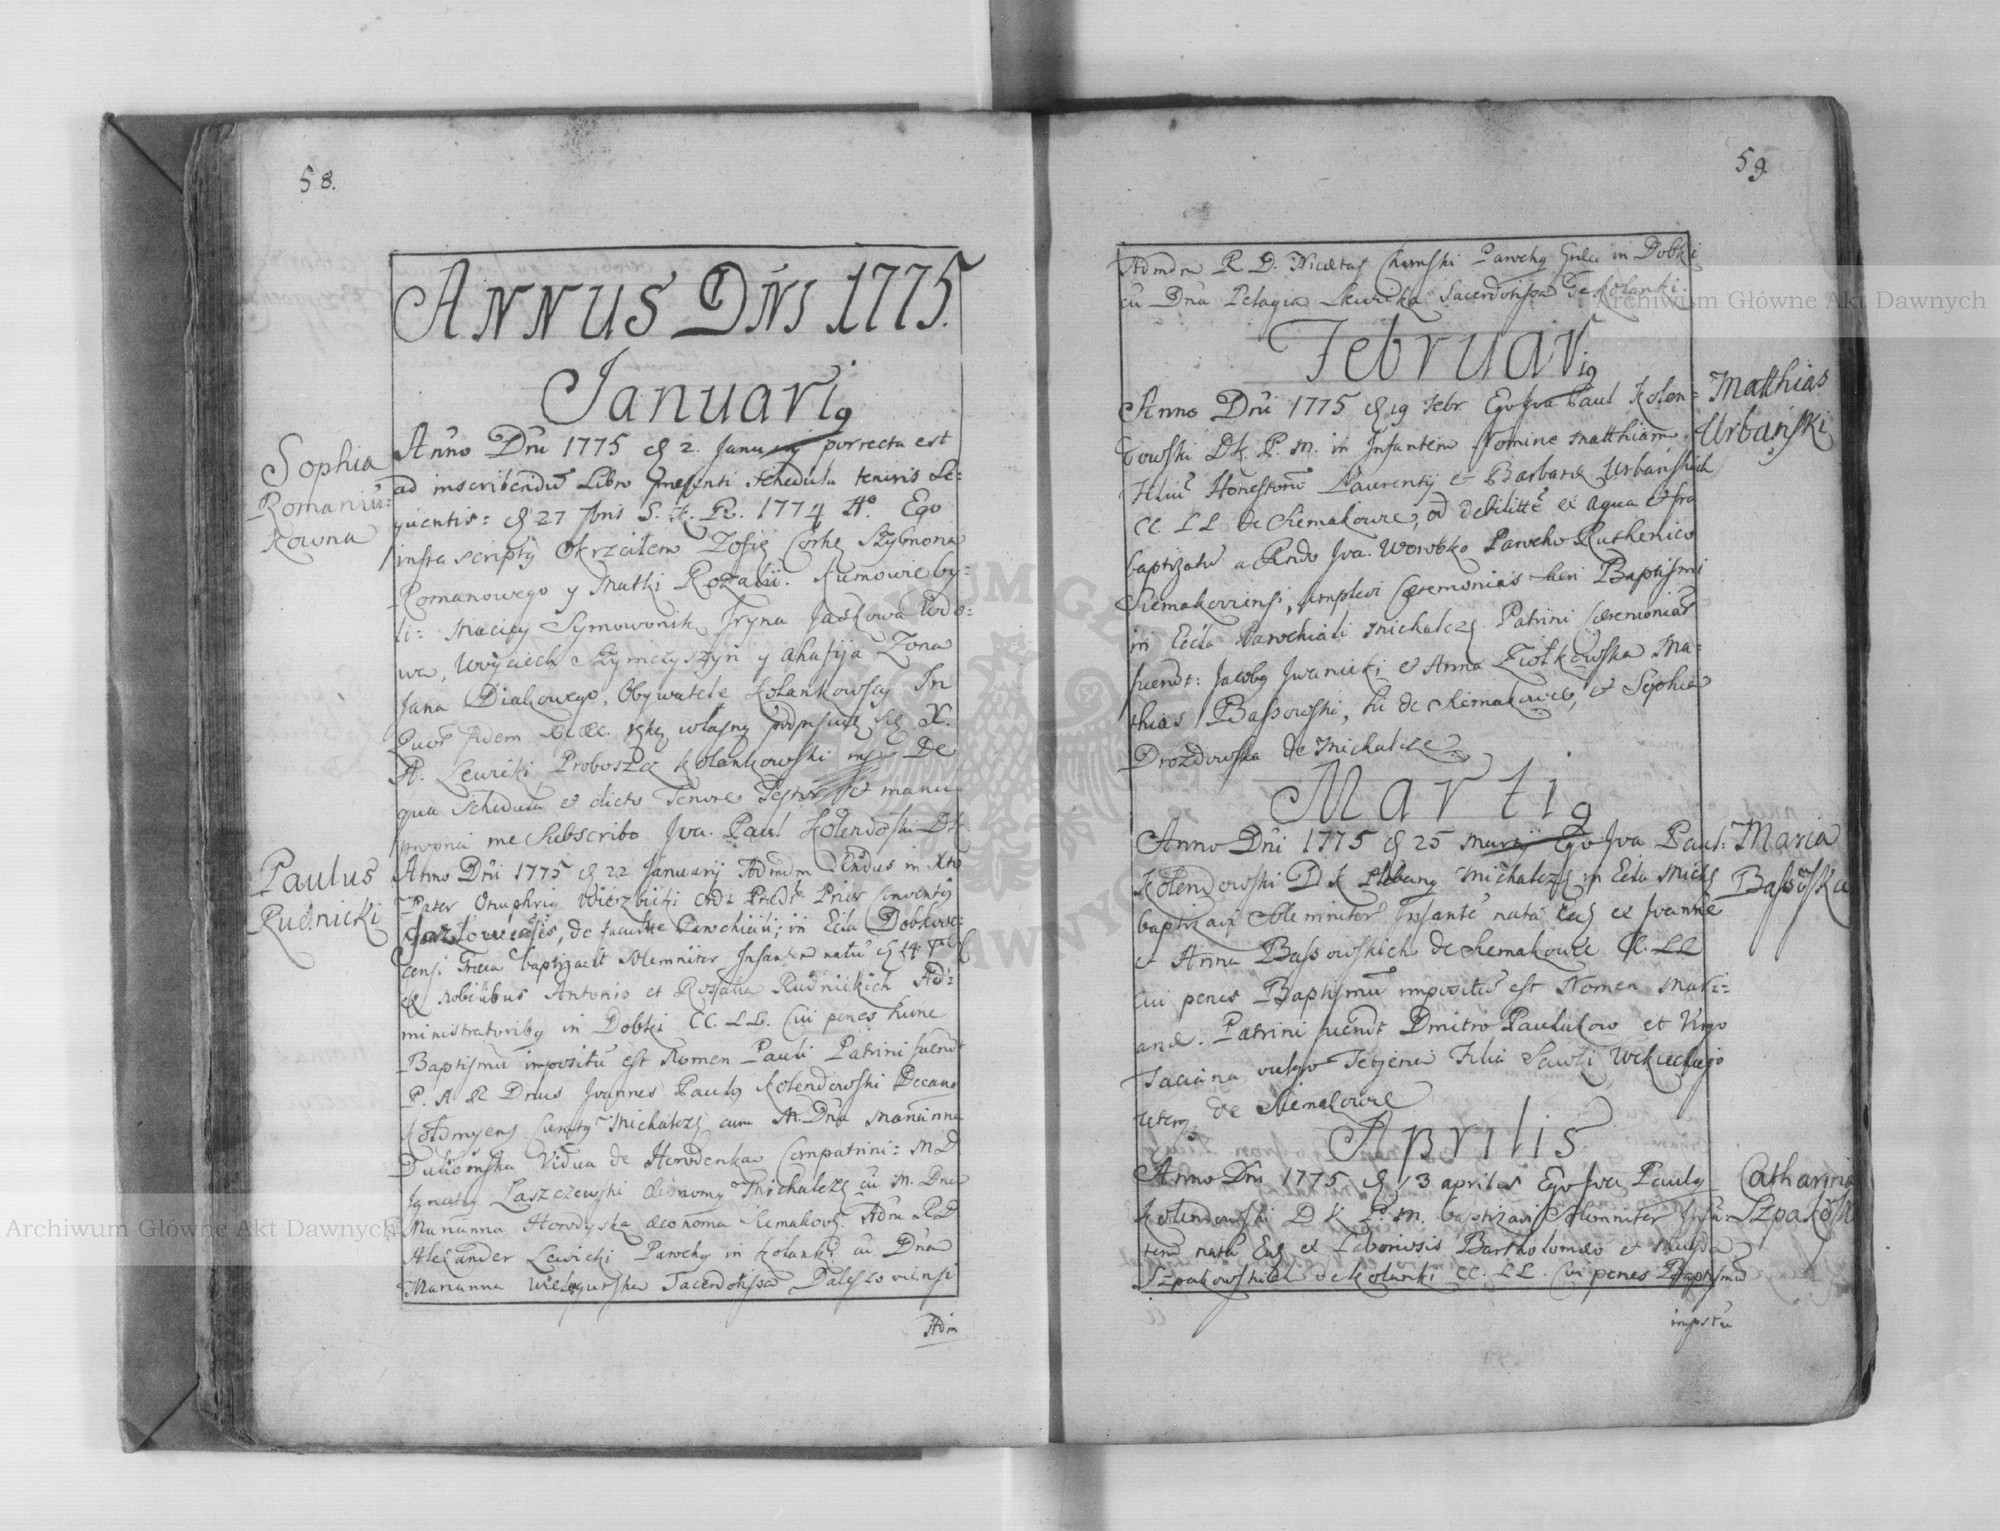 58.
ANNUS DNI 1775.
Januari9
Sophia
Romaniu=
kowna
Anno Dni 1775 d 2. Januarij porrecta est
ad inscribendu Libro praesenti schedula tenoris Se=
quentis: d 27 Xbris S. K. R. 1774 Ao. Ego
infra scripty Okrzciłem Zofię Corkę Szymona
Romanowego y Matki Rozalii. Kumowie by=
li= Maciey Symowonik, Iryna Jaskowa
wa, Woyciech Szymczyszyn y Ahafija Zona
Jana Diakowego, Obywatele Kołankowscy In
quor fidem ręką własną podpisuię się X.
A. Lewicki Proboszcz Kołankowski mp De
qua Schedula et dicto Tenore Testor et manu
propria me Subscribo Jva. Paul Kolendowski DK.
Paulus
Rudnicki
Anno Dni 1775 d 22 Januarij Admdm Rndus in Xto
Pater Onuphriy Wierzbicki Ord: Praed: Prior Conventy
de facultte Parochiali; in Ecla Dobkove=
censi Graeca baptizavit Solemniter Infantem natu d 14
ex Nobilibus Antonio et Rosalia Rudnickich Ad=
ministratoriby in Dobki CC. LL. Cui penes hunc
Baptismu impositu est Nomen Pauli Patrini fuerut
P. A R Dnus Joannes Pauly Kolendowski Decan9
Kołomyens Curaty Michalczę cum M. Dna Marianna
Vidua de Horodenka Compatrini= M D
Ignaty Laszczewski Oeconomy Michalczę cu M. Dna
Marianna Horodyska oeconoma Siemakovs. Adm RD
Alexander Lewicki Parochy in Kołanki cu Dna
Marianna Sacerdotissa Daleszoviensi
Adm
59.
Admdm R D. Nicetas Parochy Graec in Dobki
cu Dna Pelagia Lewicka Sacerdotissa de Kolanki.
Februari9
Matthias
Urbański
Anno Dni 1775 d 19 Febr Ego Jva Paul Kolen=
dowski Dk P. M. in Infantem Nomine Matthiam
Filiu Honestoru Laurentij et Barbara Urbańskich
CC. LL de Siemakowce, ob debilitte ex aqua
baptizatu a Rndo Jva. Worobko Parocho Ruthenico
Siemakoviensi, implevi Caeremonias Baptismi
in Ecla Parochiali Michalczę Patrini Caeremoniar
fuerut: Jacoby Iwanicki et Anna Ziołkowska Ma=
thias Bassowski, de Siemakowce, et Sophia
Drozdowska de Michalcze
Marti9
Maria
Bassowska
Anno Dni 1775 d 25 Martij Ego Jva Paul:
Kolendowski D K Plebany Michalczę in Ecla Michs
baptizavi Solemniter Infante nata Ead ex Joanne
et Anna Bassowskich de Siemakowce CC. LL
Cui penes Baptismu impositu est Nomen Mari=
anae. Patrini fuerut Dmitro Paulukow et Virgo
Taciana vulgo Tetjena Filia Sawki
uterq de Siemakowce
Aprilis
Catharina
Szpakowsk
Anno Dni 1775 d 13 aprilis Ego Jva Pauly
Kolendowski D K P. M. baptizavi Solemniter Infan
tem natu Ead ex Laboriosis Bartholomeo et
Szpakowskich de Kolanki CC. LL. Cui penes Baptismu
impsitu
Archiwum Główne Akt Dawnych
Archiwum Główne Akt Dawnych